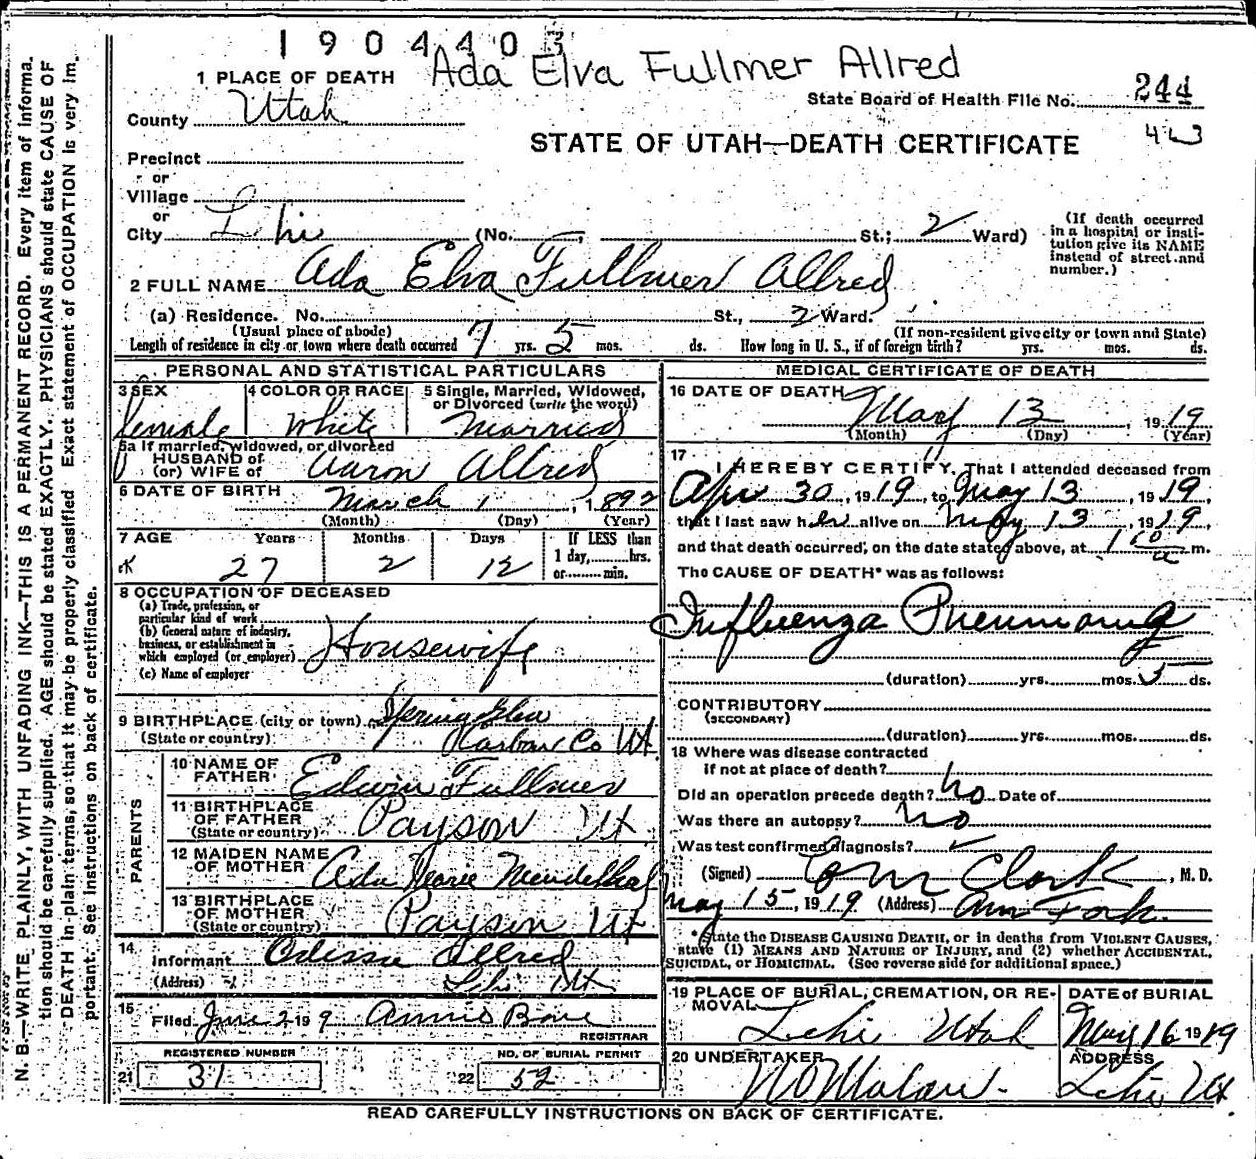 1904403
Ada Elva Fullmer Allred
1 PLACE OF DEATH
State Board of Health File No. 244
County Utah
STATE OF UTAH—DEATH CERTIFICATE
Precinct
or
Village
or
City Lehi (No. , St.; 2 Ward)
(If death occurred in a hospital or insti-
tution give its NAME instead of street and number.)
2 FULL NAME Ada Elva Fullmer Allred
(a) Residence. No. St., 2 Ward.
(Usual place of abode) (If non-resident give city or town and State)
Length of residence in city or town where death occurred 7 yrs. 5 mos. ds. How long in U. S., if of foreign birth? yrs. mos. ds.
PERSONAL AND STATISTICAL PARTICULARS
3 SEX female
4 COLOR OR RACE White
5 Single, Married, Widowed, or Divorced (write the word) Married
5a If married, widowed, or divorced
HUSBAND of
(or) WIFE of Aaron Allred
6 DATE OF BIRTH March 1, 1892
(Month) (Day) (Year)
7 AGE Years Months Days If LESS than
1 day, hrs.
or min.
27 2 12
8 OCCUPATION OF DECEASED
(a) Trade, profession, or
particular kind of work
(b) General nature of industry,
business, or establishment in
which employed (or employer) Housewife
(c) Name of employer
9 BIRTHPLACE (city or town) Spring Glen
(State or country) Carbon Co Ut
PARENTS
10 NAME OF
FATHER Edwin Fullmer
11 BIRTHPLACE
OF FATHER Payson Ut
(State or country)
12 MAIDEN NAME
OF MOTHER Ada Marie Mendenhall
13 BIRTHPLACE
OF MOTHER Payson Ut
(State or country)
14
Informant Allred
(Address) Lehi Ut
15
Filed June 2 19 9 Annie Bone
REGISTRAR
REGISTERED NUMBER
21 31
NO. OF BURIAL PERMIT
22 52
MEDICAL CERTIFICATE OF DEATH
16 DATE OF DEATH
May 13 1919
(Month) (Day) (Year)
17
I HEREBY CERTIFY, That I attended deceased from
Apr 30, 1919, to May 13, 1919,
that I last saw her alive on May 13, 1919,
and that death occurred, on the date stated above, at 1 a m.
The CAUSE OF DEATH* was as follows:
Influenza Pneumonia
(duration) yrs. mos. 5 ds.
CONTRIBUTORY
(SECONDARY)
(duration) yrs. mos. ds.
18 Where was disease contracted
if not at place of death?
Did an operation precede death? no Date of
Was there an autopsy? no
Was test confirmed diagnosis?
(Signed) Clark, M. D.
May 15, 1919 (Address) Am Fork.
*State the DISEASE CAUSING DEATH, or in deaths from VIOLENT CAUSES,
state (1) MEANS AND NATURE OF INJURY, and (2) whether ACCIDENTAL,
SUICIDAL, or HOMICIDAL. (See reverse side for additional space.)
19 PLACE OF BURIAL, CREMATION, OR RE-
MOVAL Lehi Utah
DATE of BURIAL
May 16 1919
20 UNDERTAKER
ADDRESS
Lehi Ut
READ CAREFULLY INSTRUCTIONS ON BACK OF CERTIFICATE.
N. B.—WRITE PLAINLY, WITH UNFADING INK—THIS IS A PERMANENT RECORD. Every item of informa-
tion should be carefully supplied. AGE should be stated EXACTLY. PHYSICIANS should state CAUSE OF
DEATH in plain terms, so that it may be properly classified. Exact statement of OCCUPATION is very im-
portant. See instructions on back of certificate.